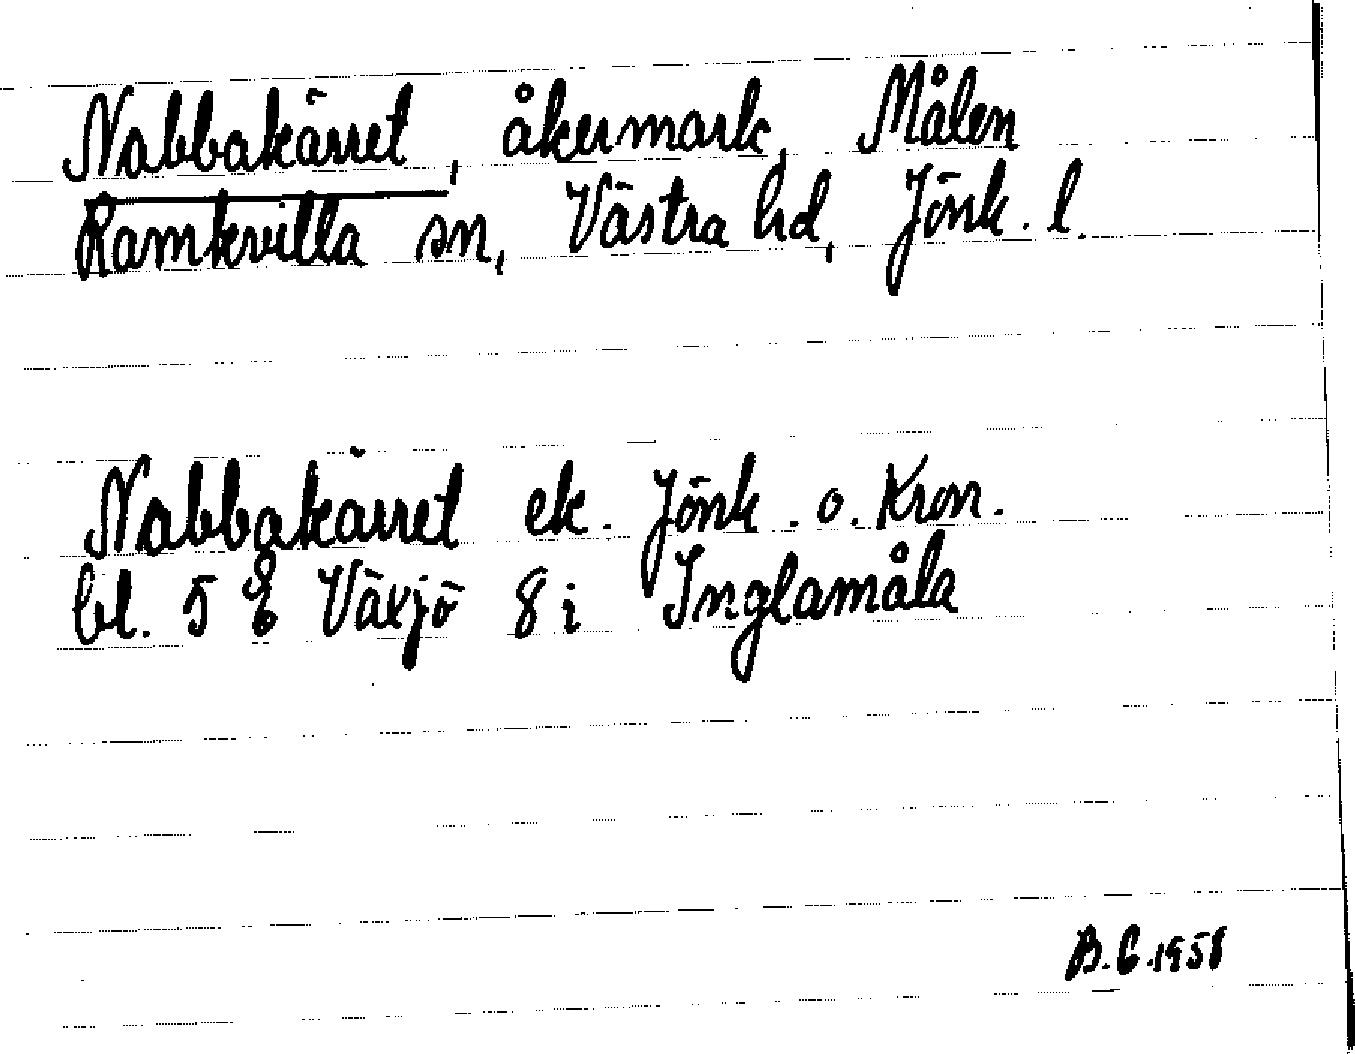 Nabbakärret, åkermark, Målen
Ramkvilla sn, Västra hd, Jönk. l.
Nabbakärret ek. Jönk. o. Kron.
bl. 5 E Växjö 8 i Inglamåla
B.G. 1958